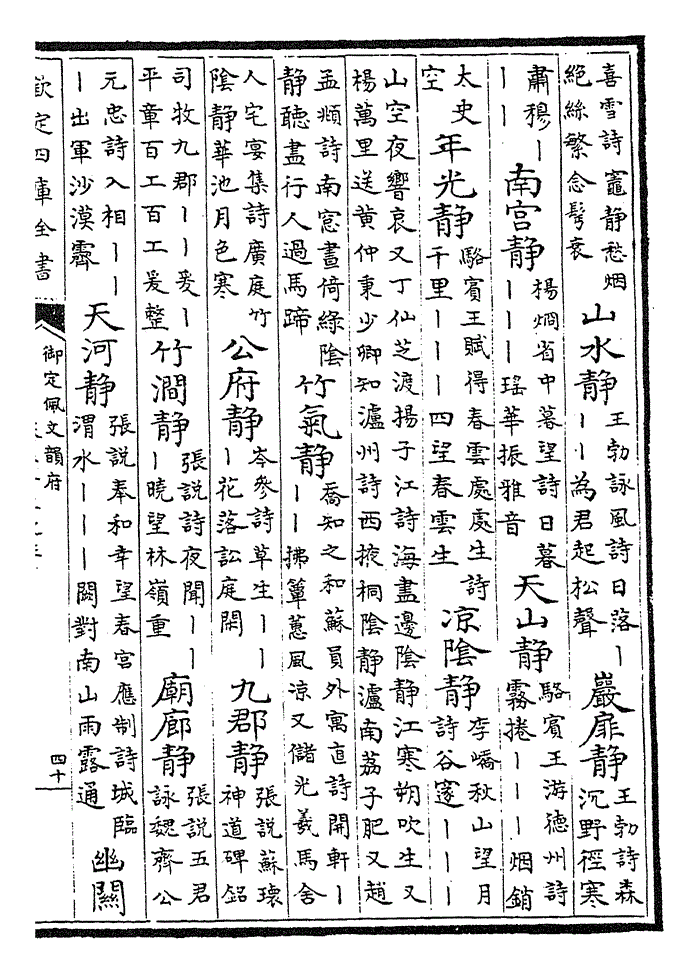 喜雪詩竈静愁烟
絶絲繁念髩衰
山水静
王勃詠風詩日落丨
丨丨為君起松聲
巖扉静
王勃詩森
沉野徑寒
肅穆丨
丨丨
南宫静
楊烱省中暮望詩日暮
丨丨丨瑶華振雅音
天山静
駱賓王游德州詩
霧捲丨丨丨烟銷
太史
空
年光静
駱賓王賦得春雲處處生詩
千里丨丨丨四望春雲生
凉陰静
李嶠秋山望月
詩谷邃丨丨丨
山空夜響哀又丁仙芝渡揚子江詩海盡邊陰静江寒朔吹生又
楊萬里送黄仲秉少卿知瀘州詩西掖桐陰静瀘南荔子肥又趙
孟頫詩南窓晝倚緑陰
静聽盡行人過馬蹄
竹氣静
喬知之和蘇員外寓直詩開軒丨
丨丨拂簟蕙風凉又儲光羲馬舍
人宅宴集詩廣庭竹
陰静華池月色寒
公府静
岑參詩草生丨丨
丨花落訟庭閑
九郡静
張説蘇瓌
神道碑銘
司牧九郡丨丨爰丨
平章百工百工爰整
竹澗静
張説詩夜聞丨丨
丨曉望林嶺重
廟廊静
張説五君
詠魏齊公
元忠詩入相丨丨
丨出軍沙漠霽
天河静
張説奉和幸望春宫應制詩城臨
渭水丨丨丨闕對南山雨露通
幽闗
欽定四庫全書
御定佩文韻府
四十